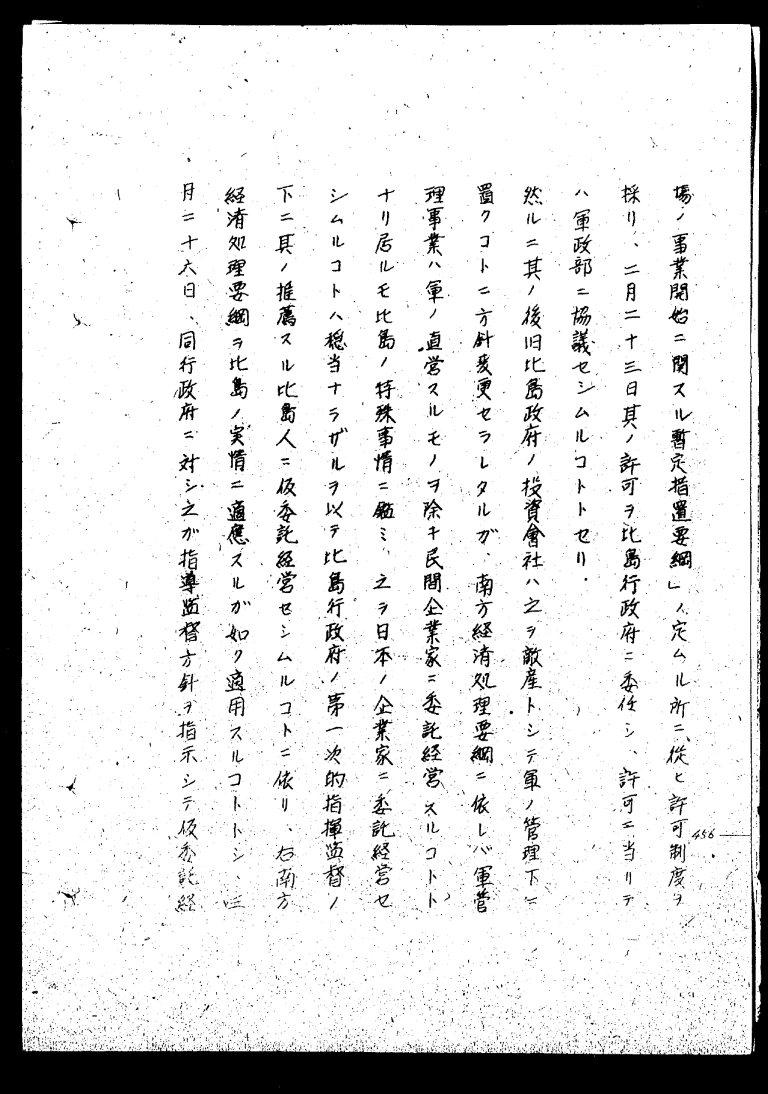 場ノ事業開始ニ関スル暫定措置要綱」ノ定ムル所ニ従ヒ許可制度ヲ
採リ、二月二十三日其ノ許可ヲ比島行政府ニ委任シ、許可ニ当リテ
ハ軍政部ニ協議セシムルコトトセリ.
然ルニ其ノ後旧比島政府ノ投資會社ハ之ヲ敵産トシテ軍ノ管理下ニ
置クコトニ方針変更セラレタルガ、南方経済処理要綱ニ依レバ軍管
理事業ハ軍ノ直営スルモノヲ除キ民間企業家ニ委託経営スルコトト
ナリ居ルモ比島ノ特殊事情ニ鑑ミ、之ヲ日本ノ企業家ニ委託経営セ
シムルコトハ穏当ナラザルヲ以テ比島行政府ノ第一次的指揮監督ノ
下ニ其ノ推薦スル比島人ニ仮委託経営セシムルコトニ依リ、右南方
経済処理要綱ヲ比島ノ実情ニ適應スルガ如ク適用スルコトトシ、三
月二十六日、同行政府ニ対シ之ガ指導監督方針ヲ指示シテ仮委託経
456